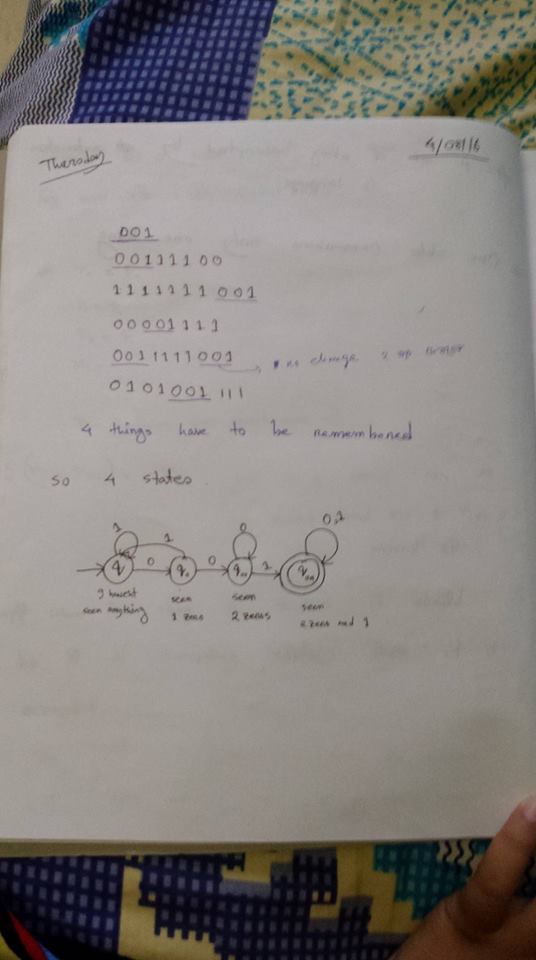 Thursday
4/08/16
001
00111100
1111111001
00001111
0011111001
no change
0101001111
4 things have to be remembered
so 4 states.
1
1
0
0,1
q
0
q0
0
q00
1
q001
I havent
seen anything
seen
1 zero
seen
2 zeros
seen
2 zeros and 1